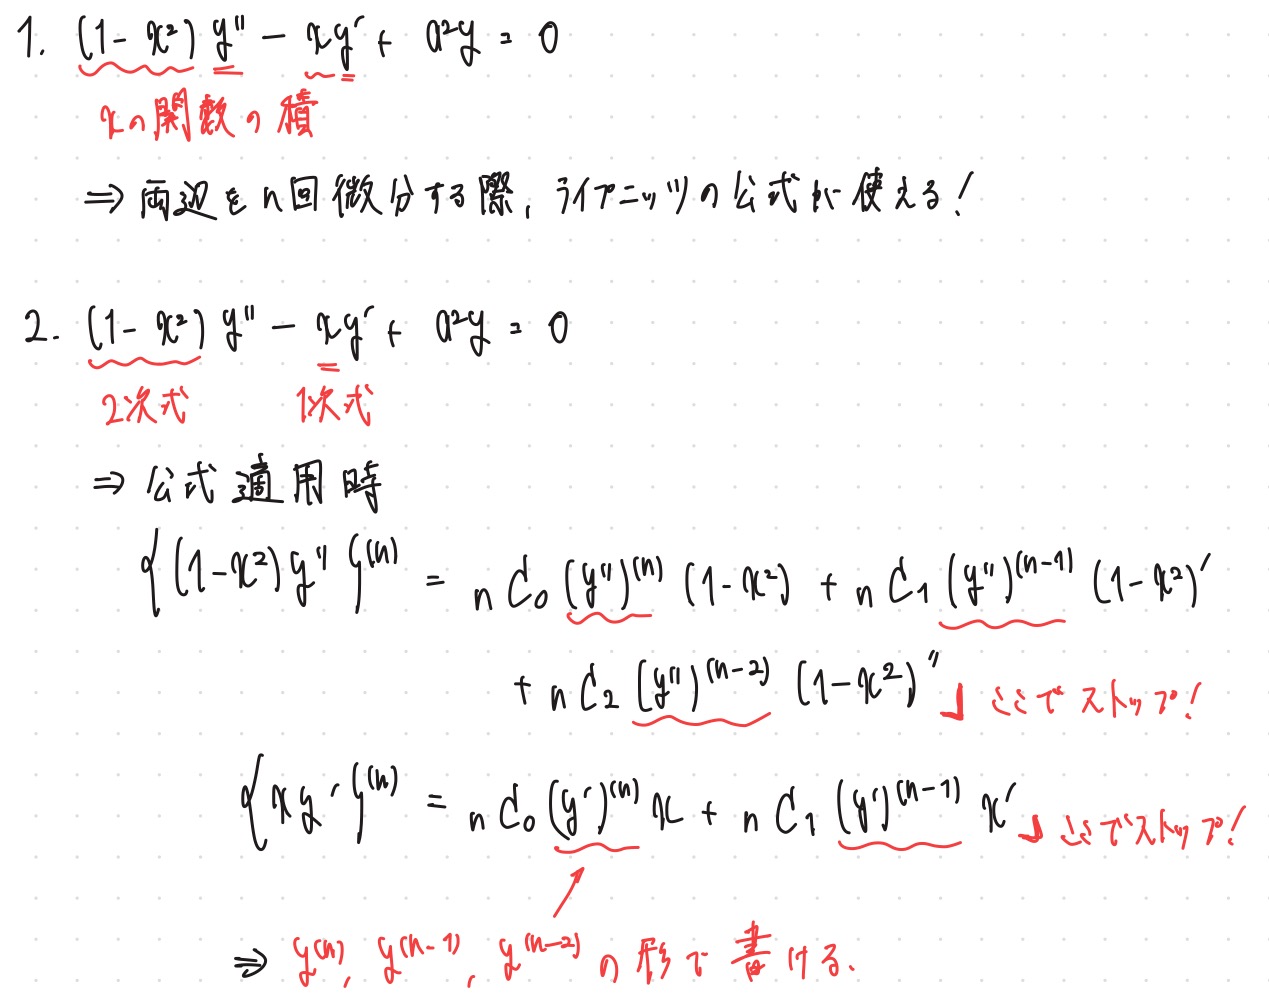 1. (1-x²)y'' - xy' + a²y = 0
xの関数の積
⇒ 両辺をn回微分する際, ライプニッツの公式が使える!
2. (1-x²)y'' - xy' + a²y = 0
2次式 1次式
⇒ 公式適用時
{(1-x²)y''}⁽ⁿ⁾ = nC₀(y'')⁽ⁿ⁾(1-x²) + nC₁(y'')⁽ⁿ⁻¹⁾(1-x²)'
+ nC₂(y'')⁽ⁿ⁻²⁾(1-x²)'' 」ここでストップ!
{xy'}⁽ⁿ⁾ = nC₀(y')⁽ⁿ⁾x + nC₁(y')⁽ⁿ⁻¹⁾x' 」ここでストップ!
⇒ y⁽ⁿ⁾, y⁽ⁿ⁻¹⁾, y⁽ⁿ⁻²⁾の形で書ける.